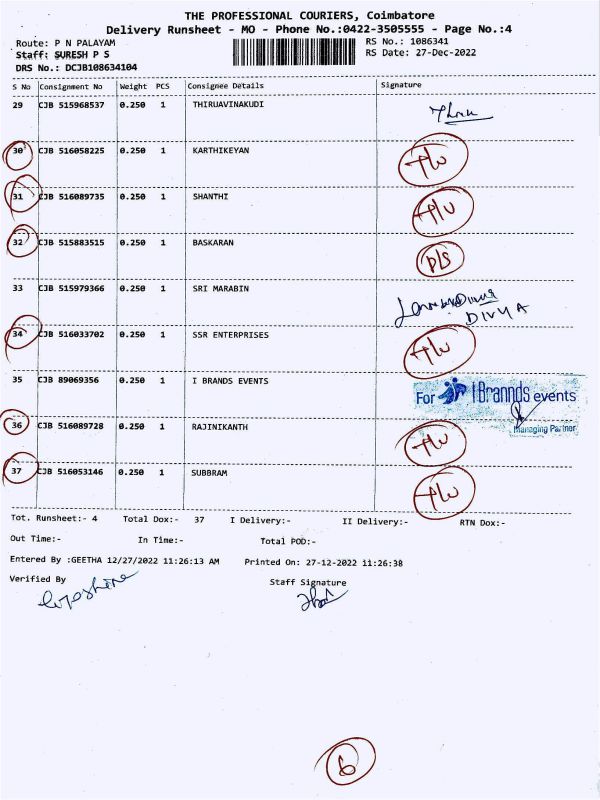 THE PROFESSIONAL COURIERS, Coimbatore
Delivery Runsheet - MO - Phone No.:0422-3505555 - Page No.:4
Route: P N PALAYAM RS No.: 1086341
Staff: SURESH P S RS Date: 27-Dec-2022
DRS No.: DCJB108634104
S No Consignment No Weight PCS Consignee Details Signature
29 CJB 515968537 0.250 1 THIRUAVINAKUDI
30 CJB 516058225 0.250 1 KARTHIKEYAN
31 CJB 516089735 0.250 1 SHANTHI
32 CJB 515883515 0.250 1 BASKARAN
33 CJB 515979366 0.250 1 SRI MARABIN
DIVYA
34 CJB 516033702 0.250 1 SSR ENTERPRISES
35 CJB 89069356 0.250 1 I BRANDS EVENTS
For I Brannds events
Managing Partner
36 CJB 516089728 0.250 1 RAJINIKANTH
37 CJB 516053146 0.250 1 SUBBRAM
Tot. Runsheet:- 4 Total Dox:- 37 I Delivery:- II Delivery:- RTN Dox:-
Out Time:- In Time:- Total POD:-
Entered By :GEETHA 12/27/2022 11:26:13 AM Printed On: 27-12-2022 11:26:38
Verified By Staff Signature
6